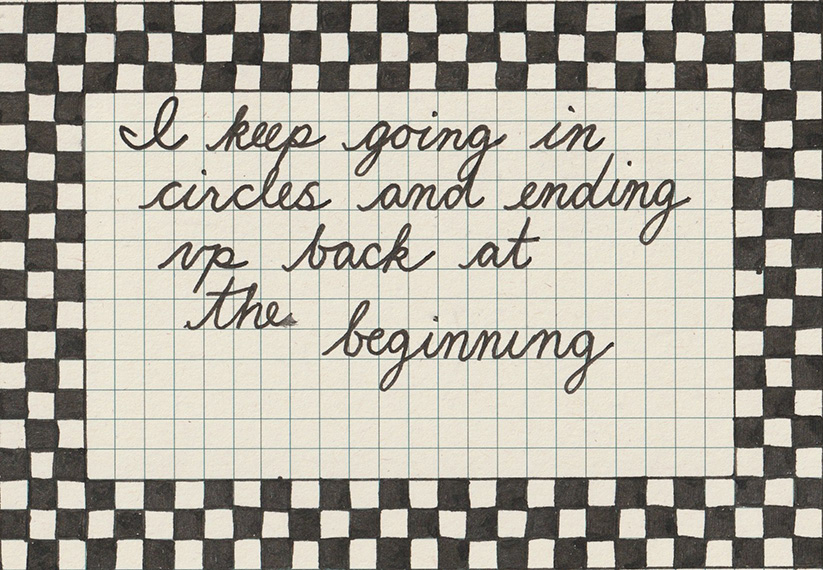 I keep going in
circles and ending
up back at
the beginning